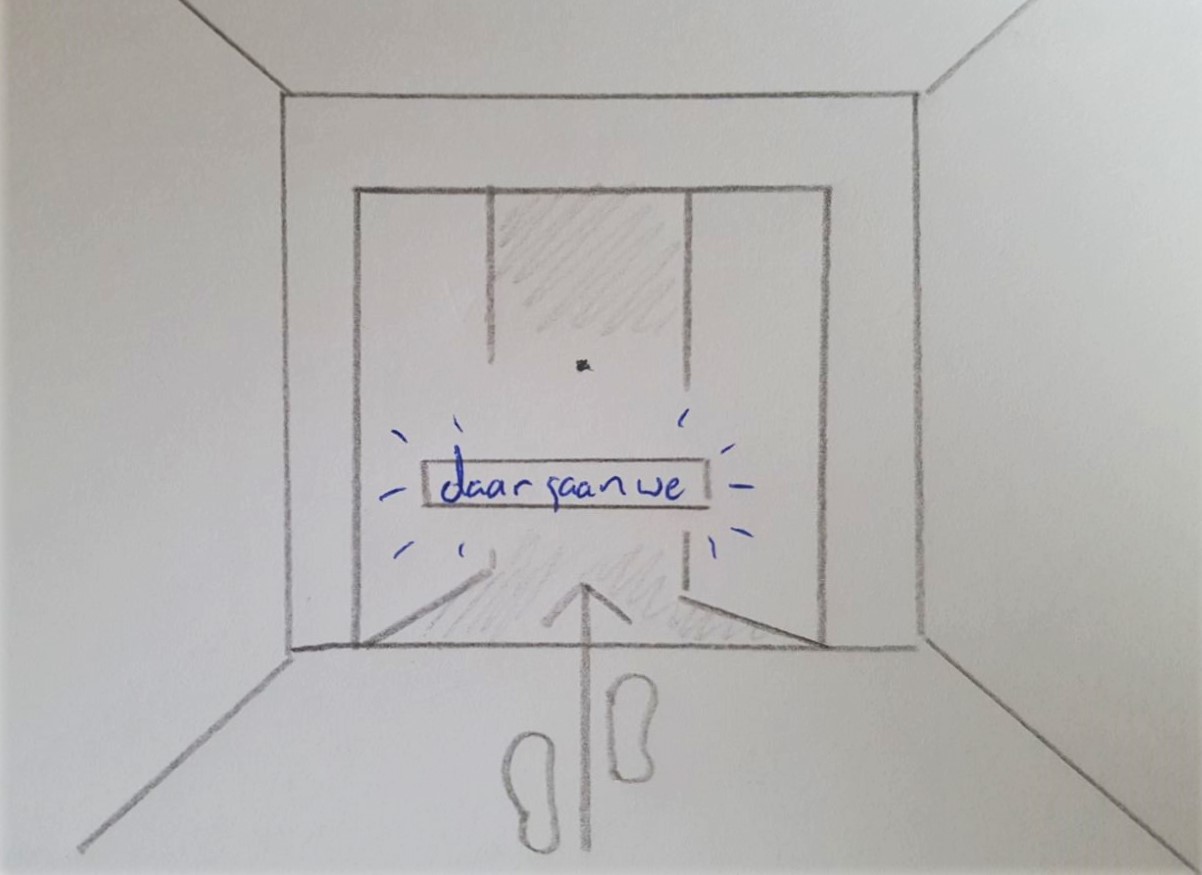 daar gaan we